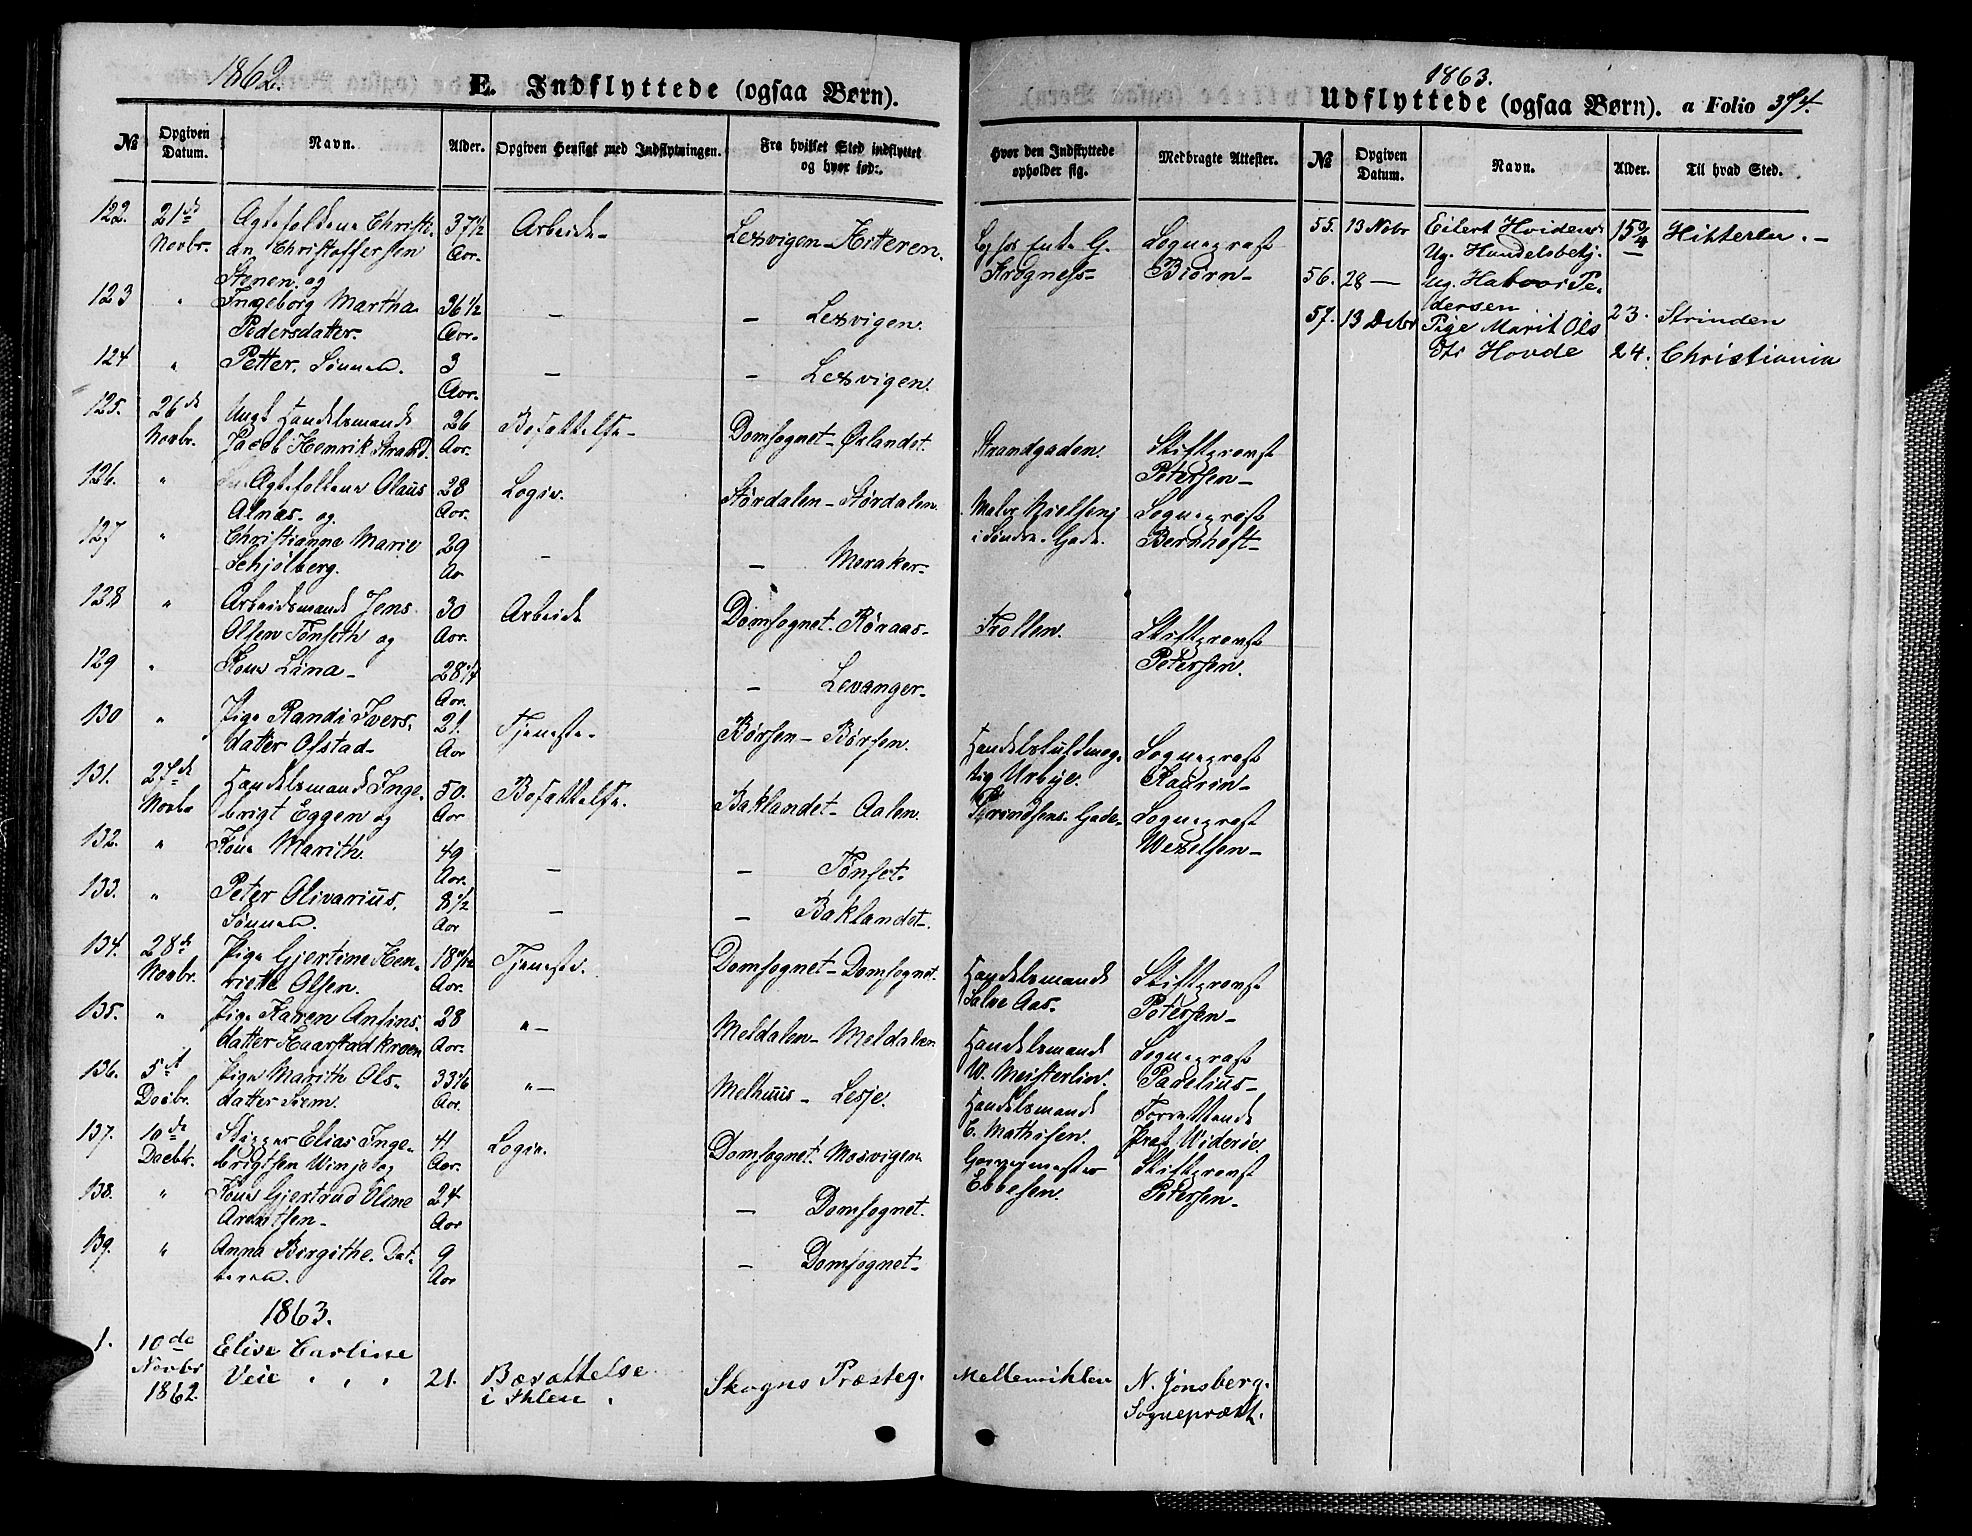 1862.
E. Indflyttede (ogsaa Børn).
№ Opgiven Datum. Navn. Alder. Opgiven Hensigt med Indflytningen. Fra hvilket Sted indflyttet og hvor født.
Hvor den Indflyttede opholder sig. Medbragte Attester.
122. 21de Novbr. Ægtefolkene Christi-
an Christoffersen
Stenen og 37½ Aar. Arbeide- Lexvigen-Hitteren. Krogness- Sogneprest Biørn-
123 " Ingeborg Martha
Pedersdatter. 36½ Aar. - - Lexvigen.
124 " Petter. Sønnen. 3 Aar. - - Lexvigen.
125. 26de Novbr. Ungk. Handelsmand
Jacob Henrik Strand. 26 Aar. Besættelse- Domsognet-Ørlandet. Strandgaden. Stiftsprovst Petersen-
126. " Ægtefolkene Olaus
Alnæs. og 28 Aar. Logie. Størdalen-Størdalen. Sogneprest Bernhoft-
127 " Christianna Marie
Schjølberg. 29 Aar - - Meraker-
128 " Arbeidsmand Jens
Olsen Tønseth og 30 Aar. Arbeide Domsognet-Røraas- Stiftsprovst Petersen.
129 " Kone Lina- 28¼ Aar. - Levanger-
130 " Pige Randi Ivers-
datter Ofstad- 21. Aar Tjeneste- Børsen-Børsen. Handelsfuldmæg-
tig Urbye. Sogneprest Kaurin-
131. 27de Novbr Handelsmand Inge-
brigt Eggen og 50. Aar Besættelse. Baklandet-Aalen. Gade- Sogneprest Wexelsen-
132. " Kone Marith. 49 Aar. - - Tønset.
133. " Peter Olivarius.
Sønnen. 8½ Aar - - Baklandet-
134. 28de Novbr. Pige Gjertine Hen-
riette Olsen. 18 Aar. Tjeneste. Domsognet-Domsognet. Handelsmand
Aas. Stiftsprovst Petersen-
135. " Pige Karen Antins-
datter Haarstadkroen 28 Aar. "- Meldalen-Meldalen Handelsmand
W. Meisterlin. Sogneprest Parelius-
136. 5te Decbr. Pige Marith Ols-
datter Siem. 33 Aar. "- Melhuus-Lesje. Handelsmand
E. Mathisen. Forrettende Prest Widerøe.
137. 10de Decbr. Elias Inge-
brigtsen Winje og 41 Aar. Logie. Domsognet-Mosvigen Garvermester
Ebbesen. Stiftsprovst Petersen-
138. " Kone Gjertrud Oline
Arentsen- 24 Aar - Domsognet.
139. " Anna Birgithe. Dat-
teren. 9 Aar - Domsognet-
1863.
1. 10de Novbr 1862. Elise Carline
Veie " " " 21. Besættelse
i Ihlen. Skogns Præsteg. Mellemihlen N. Jønsberg.
Sogneprest.
1863.
Udflyttede (ogsaa Børn). a Folio 374.
№ Opgiven Datum. Navn. Alder. Til hvad Sted.
55. 13 Novbr Eilert Hvidens
Ug. Handelsbetj. 15¾ Hitteren. -
56. 28 - Ug. Halvor Pe-
dersen 23. Strinden
57. 13 Decbr Pige Marit Ols
dtr Hovde 24. Christiania